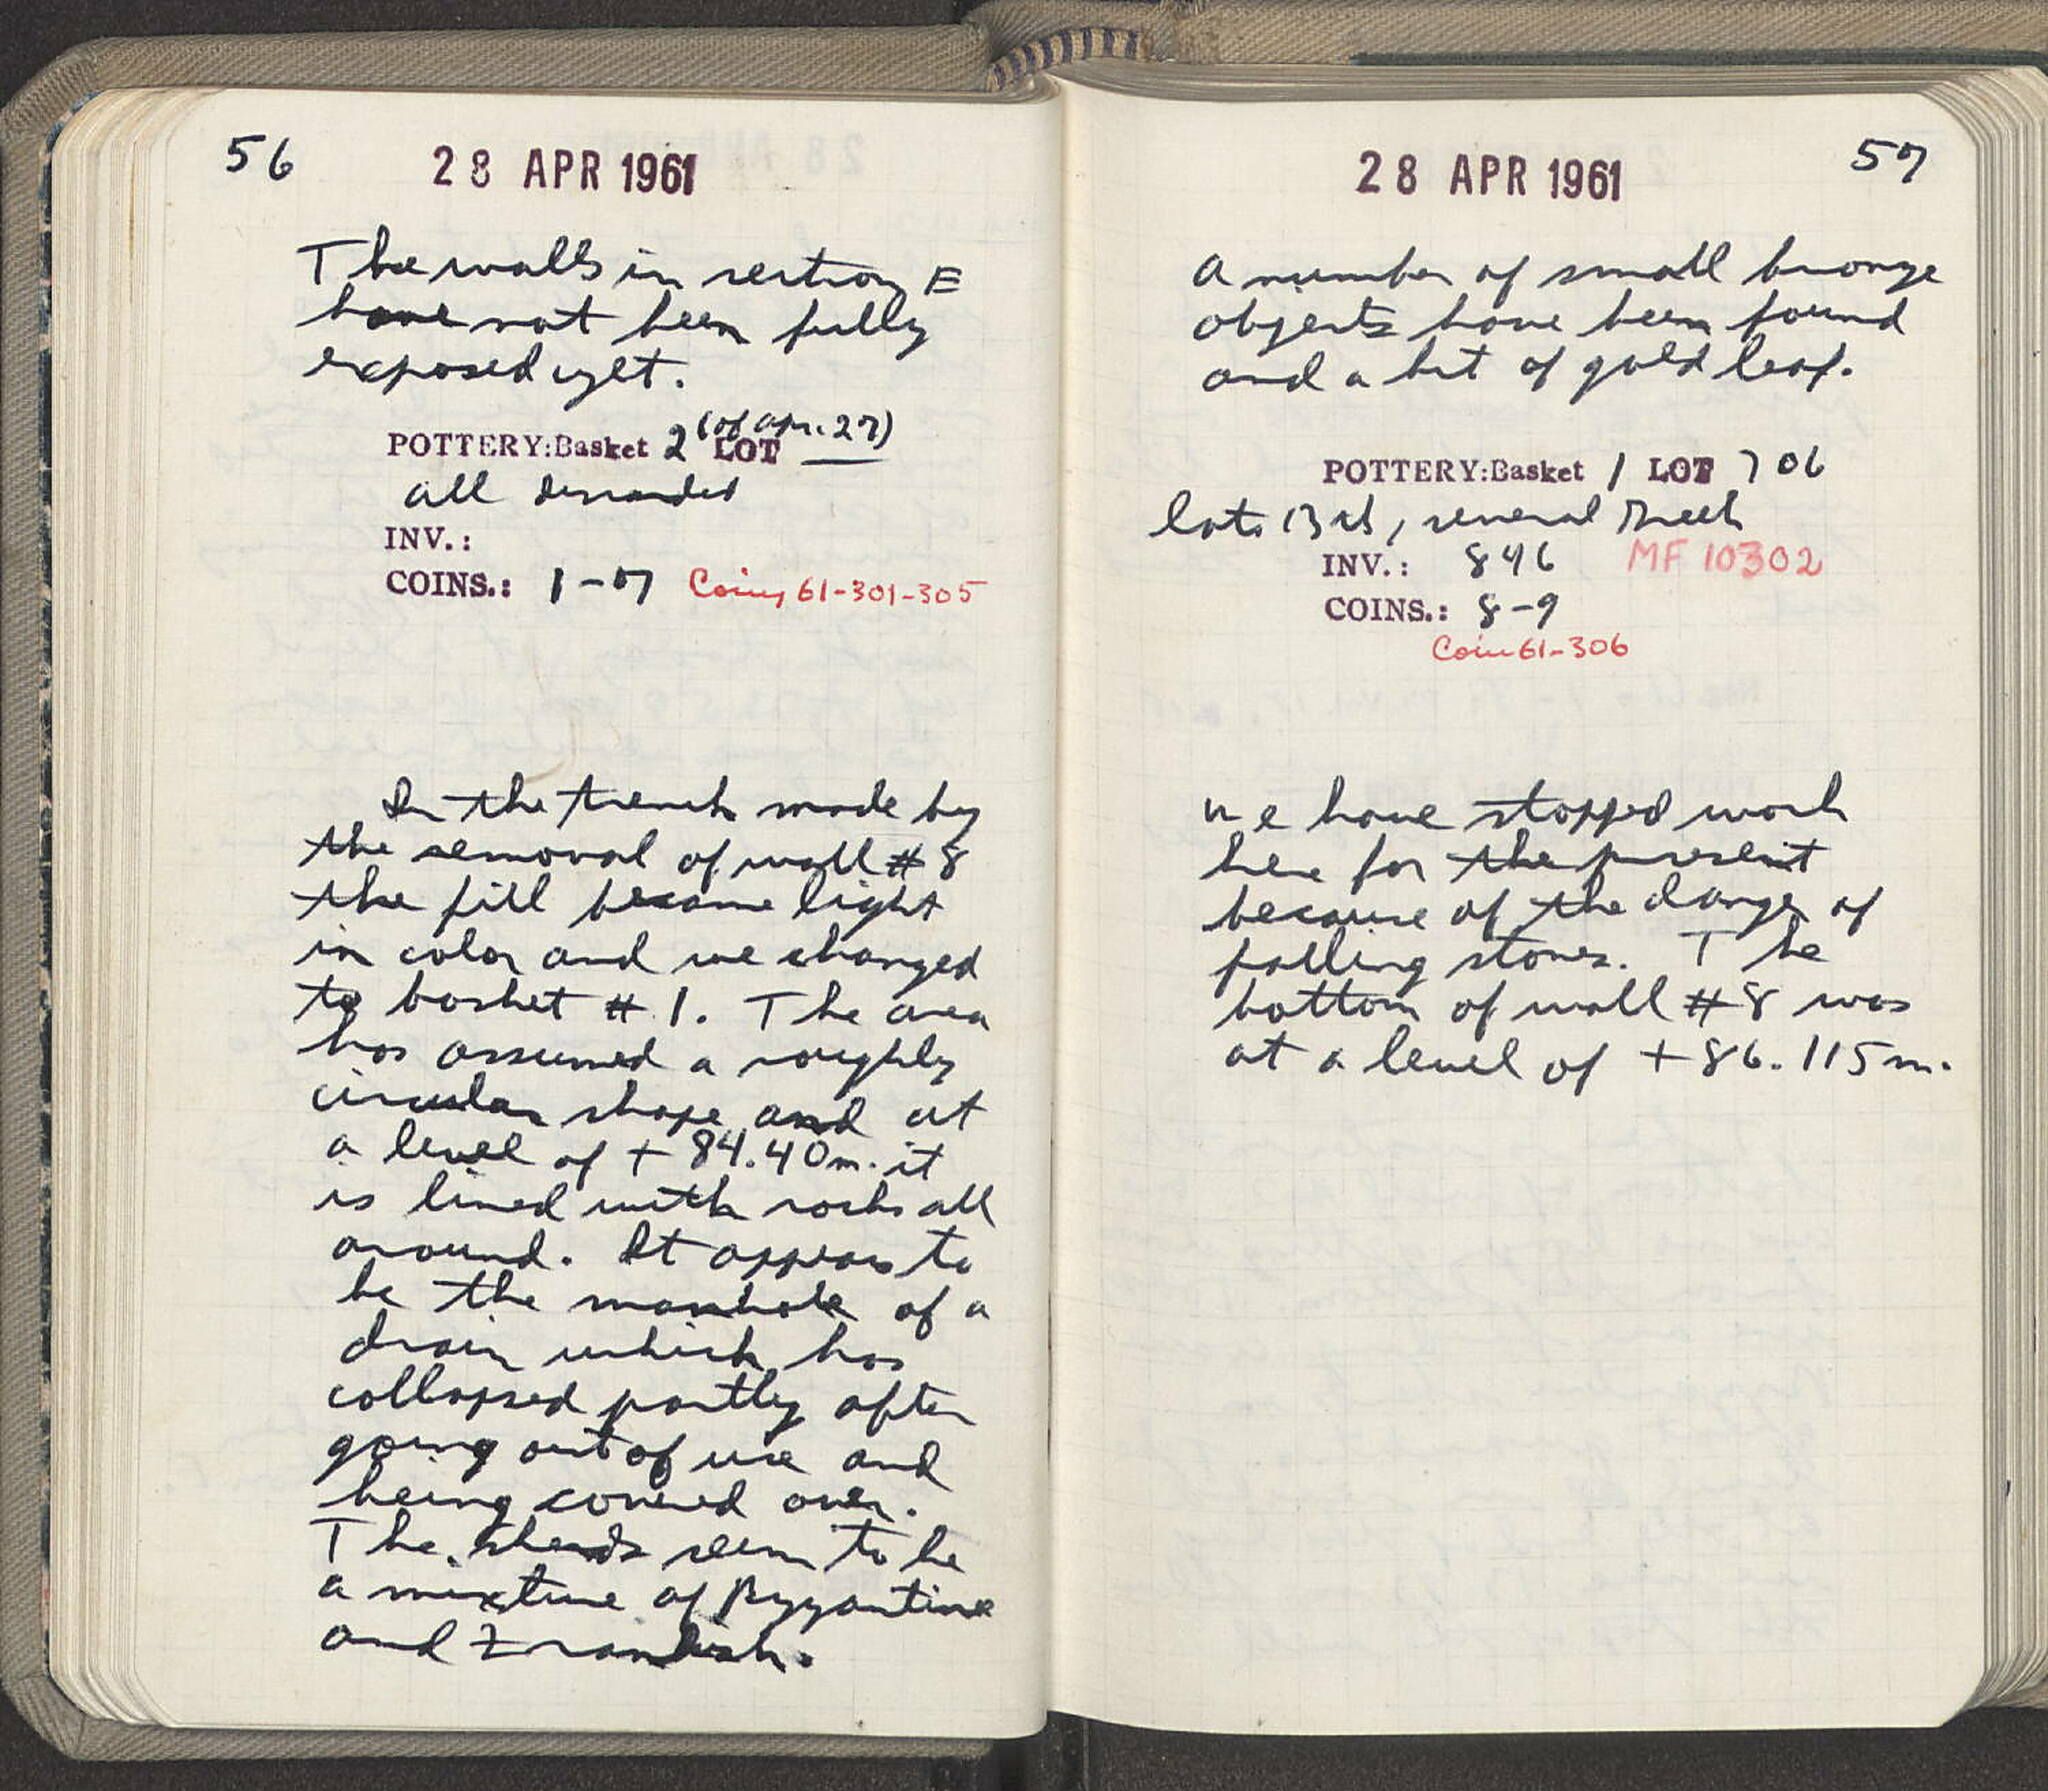 56
28 APR 1961
The walls in section E
have not been fully
exposed yet.
(of Apr. 27)
POTTERY:Basket 2 LOT —
all discarded
INV.:
COINS.: 1-07 Coins 61-301-305
In the trench made by
the removal of wall #8
the fill became light
in color and we changed
to basket #1. The area
has assumed a roughly
circular shape and at
a level of +84.40m. it
is lined with rocks all
around. It appears to
be the manhole of a
drain which has
collapsed partly after
going out of use and
being covered over.
The sherds seem to be
a mixture of Byzantine
and Frankish.
57
28 APR 1961
A number of small bronze
objects have been found
and a bit of gold leaf.
POTTERY:Basket 1 LOT 706
late 13th, several Greek
INV.: 846 MF 10302
COINS.: 8-9
Coin 61-306
We have stopped work
here for the present
because of the danger of
falling stones. The
bottom of wall #8 was
at a level of +86.115m.